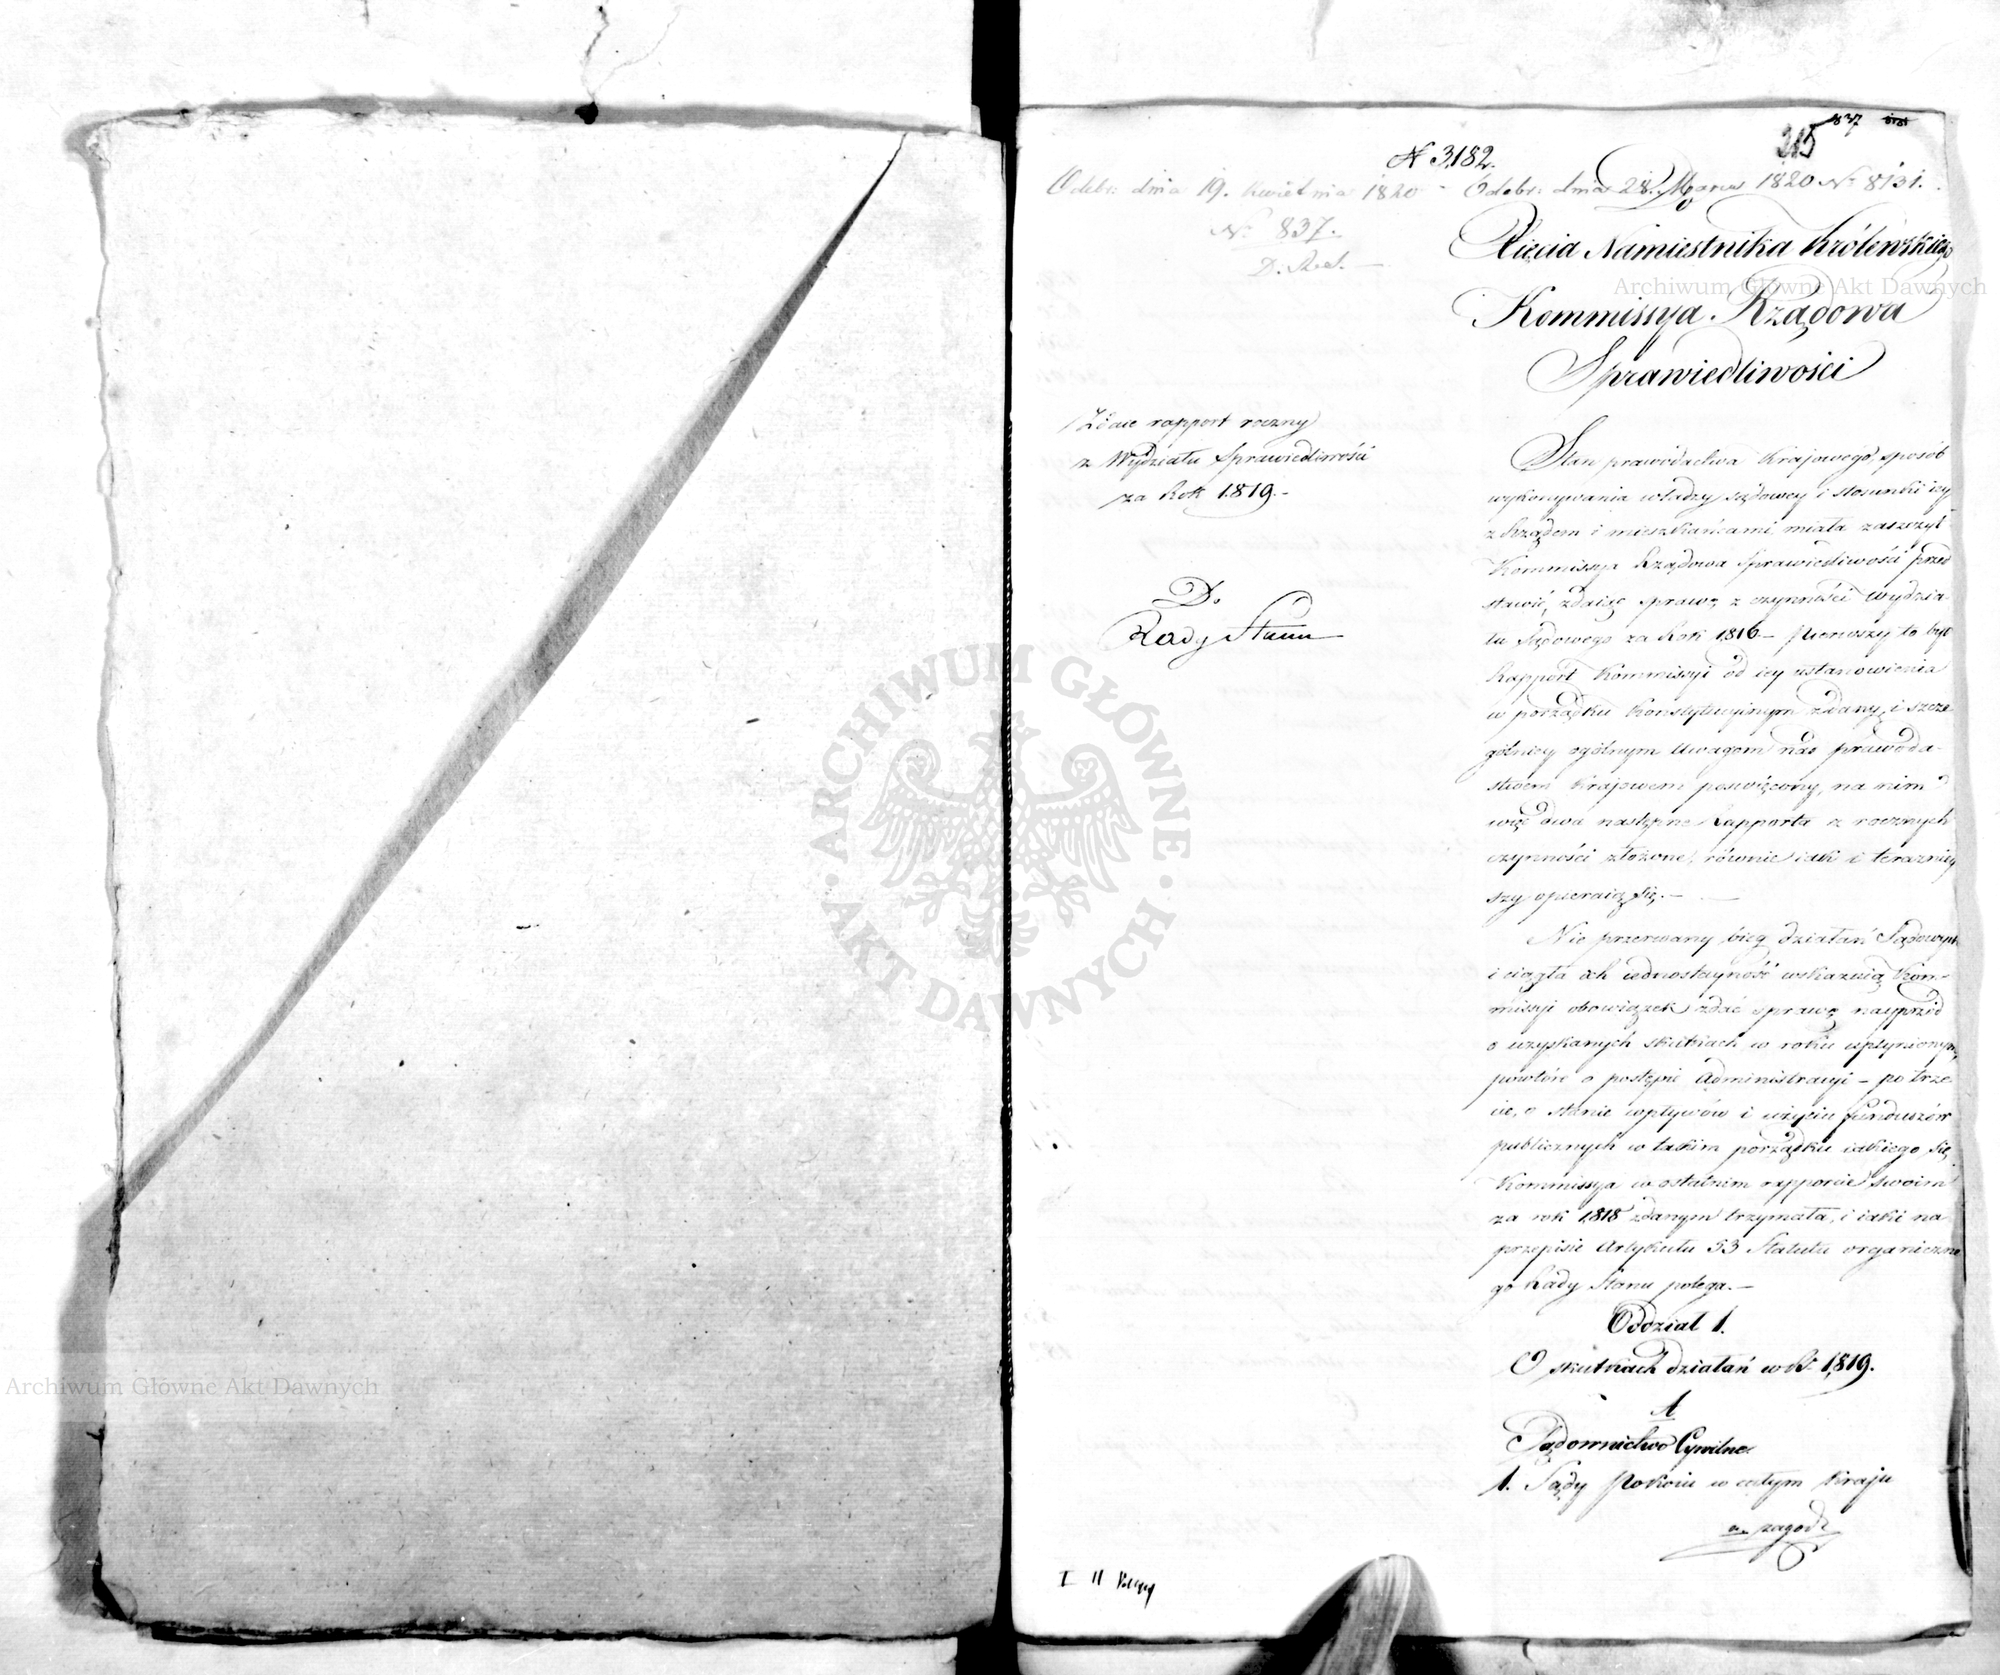 837
315
N 3,182.
Odebr: dnia 19. Kwietnia 1820 - Odebr: dnia 28. Marca 1820 Nr 8131.
Nr 837.
Xięcia Namiestnika Królewskiego
Kommissya Rządowa
Sprawiedliwości
Zdaie rapport roczny
z Wydziału Sprawiedliwości
za Rok 1819.-
D.
Rady Stanu
Stan prawodactwa Krajowego, sposób
wykonywania władzy sądowey i stosunki iey
z Rządem i mieszkańcami miała zaszczyt
Kommissya Rządowa Sprawiedliwości przed
stawić, zdaiąc sprawę z czynności Wydzia-
łu Sądowego za Rok 1816 - Pierwszy to był
Rapport Kommissyi od iey ustanowienia
w porządku Konstytucyinym zdany, i szcze-
gólniey ogólnym Uwagom nad prawoda-
stwem Krajowem poswięcony, na nim
więc dwa następne Rapporta z rocznych
czynności złożone, równie iak i teraźniey
szy opieraią się.-
Nie przerwany bieg działań Sądowych
i ciągła ich iednostayność wskazuią Kom-
missyi obowiązek zdać sprawę nayprzód
o uzyskanych skutkach w roku upłynionym,
powtóre o postępie Administracyi - po trze-
cie, o stanie wpływów i użyciu funduszów
publicznych w takim porządku iakiego się
Kommissya w ostatnim rapporcie swoim
za rok 1818 zdanym trzymała, i iaki na
przepisie Artykułu 53 Statutu organiczne
go Rady Stanu polega.-
Oddział 1.
O skutkach działań w R. 1819.
A
Sądownictwo Cywilne.
1. Sądy Pokoiu w całym Kraju
zagodz
I II
Archiwum Główne Akt Dawnych
Archiwum Główne Akt Dawnych
ARCHIWUM GŁÓWNE
AKT DAWNYCH